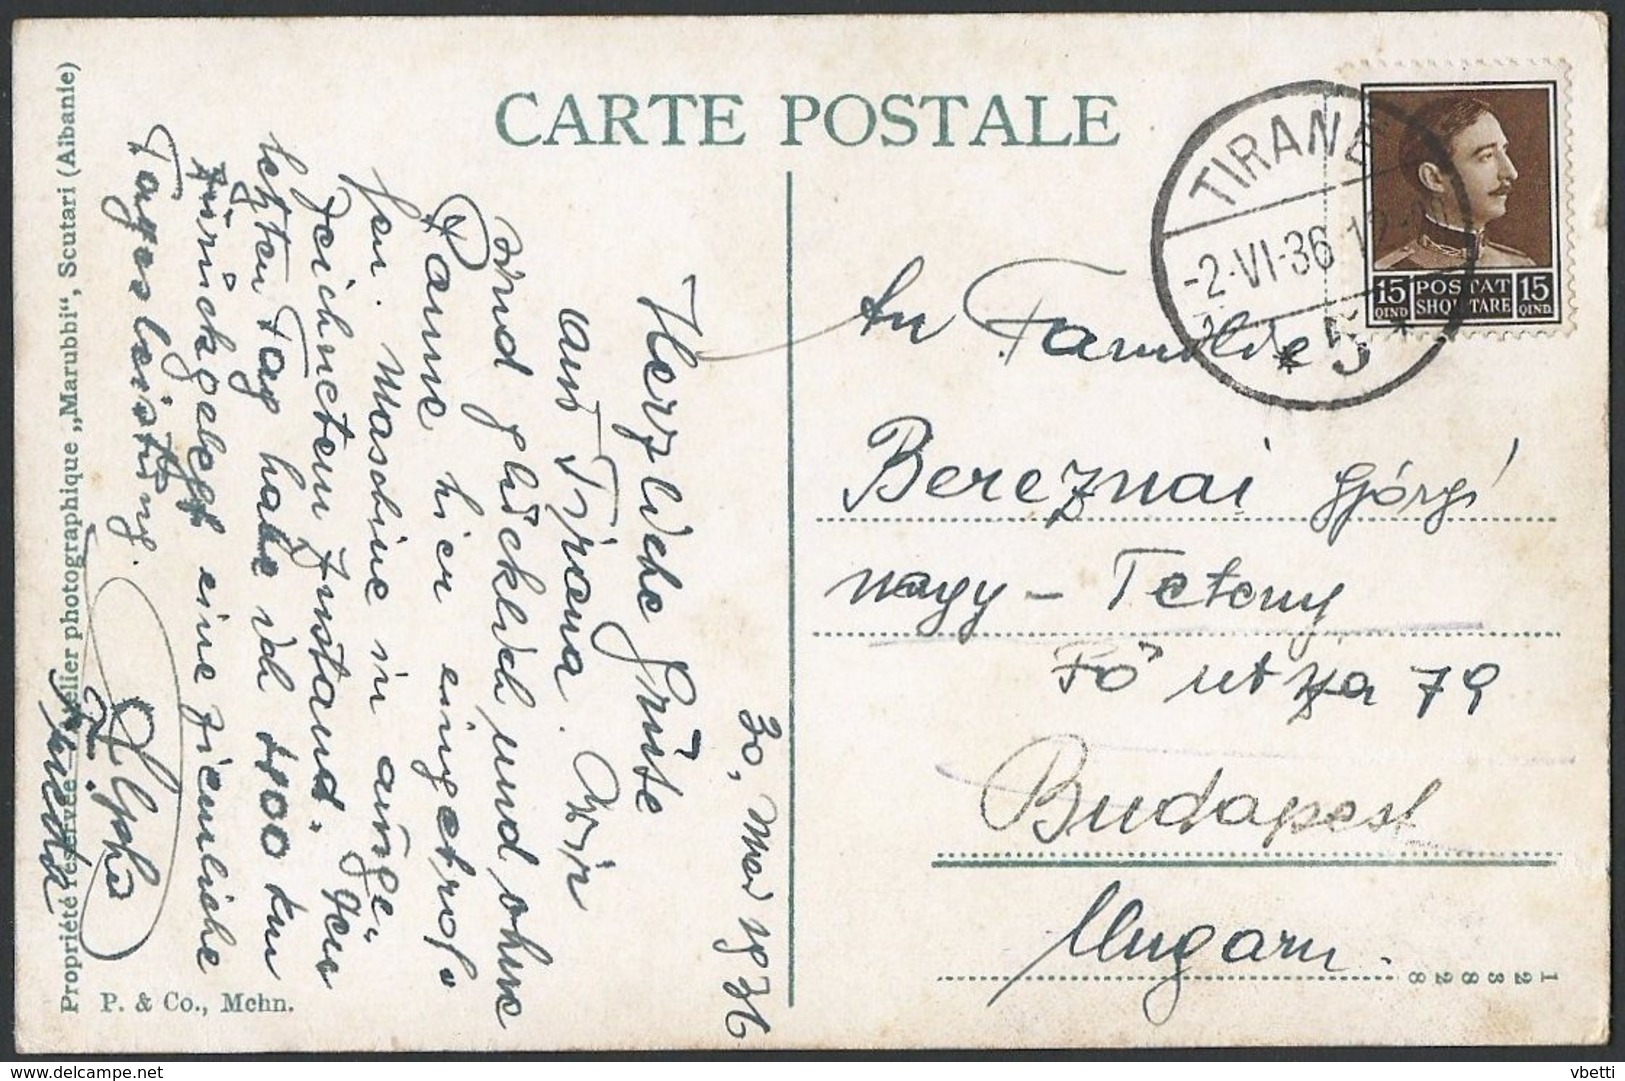 CARTE POSTALE
30, Mai 1936
Herzliche Grüsse
aus Tirana. Wir
sind glücklich und ohne
Panne hier eingetrof-
fen. Maschine in ausge-
zeichnetem Zustand. Den
letzten Tag habe ich 400 km
zurückgelegt eine ziemliche
Tagesleistung.
TIRANË
-2.VI-36
* 5 *
15 POSTAT 15
QIND SHQIPTARE QIND.
An Familie
Bereznai György
Nagy-Teteny
Fő utzja 79
Budapest
Ungarn.
122828
Propriété réservée Atelier photographique „Marubbi“, Scutari (Albanie)
P. & Co., Mchn.
vbetti